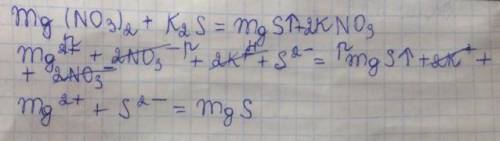 Mg (NO3)2 + K2S = MgS↑+2KNO3
Mg2+ + 2NO3- + 2K+ + S2- = MgS↑ + 2K+ +
+ 2NO3-
Mg2+ + S2- = MgS